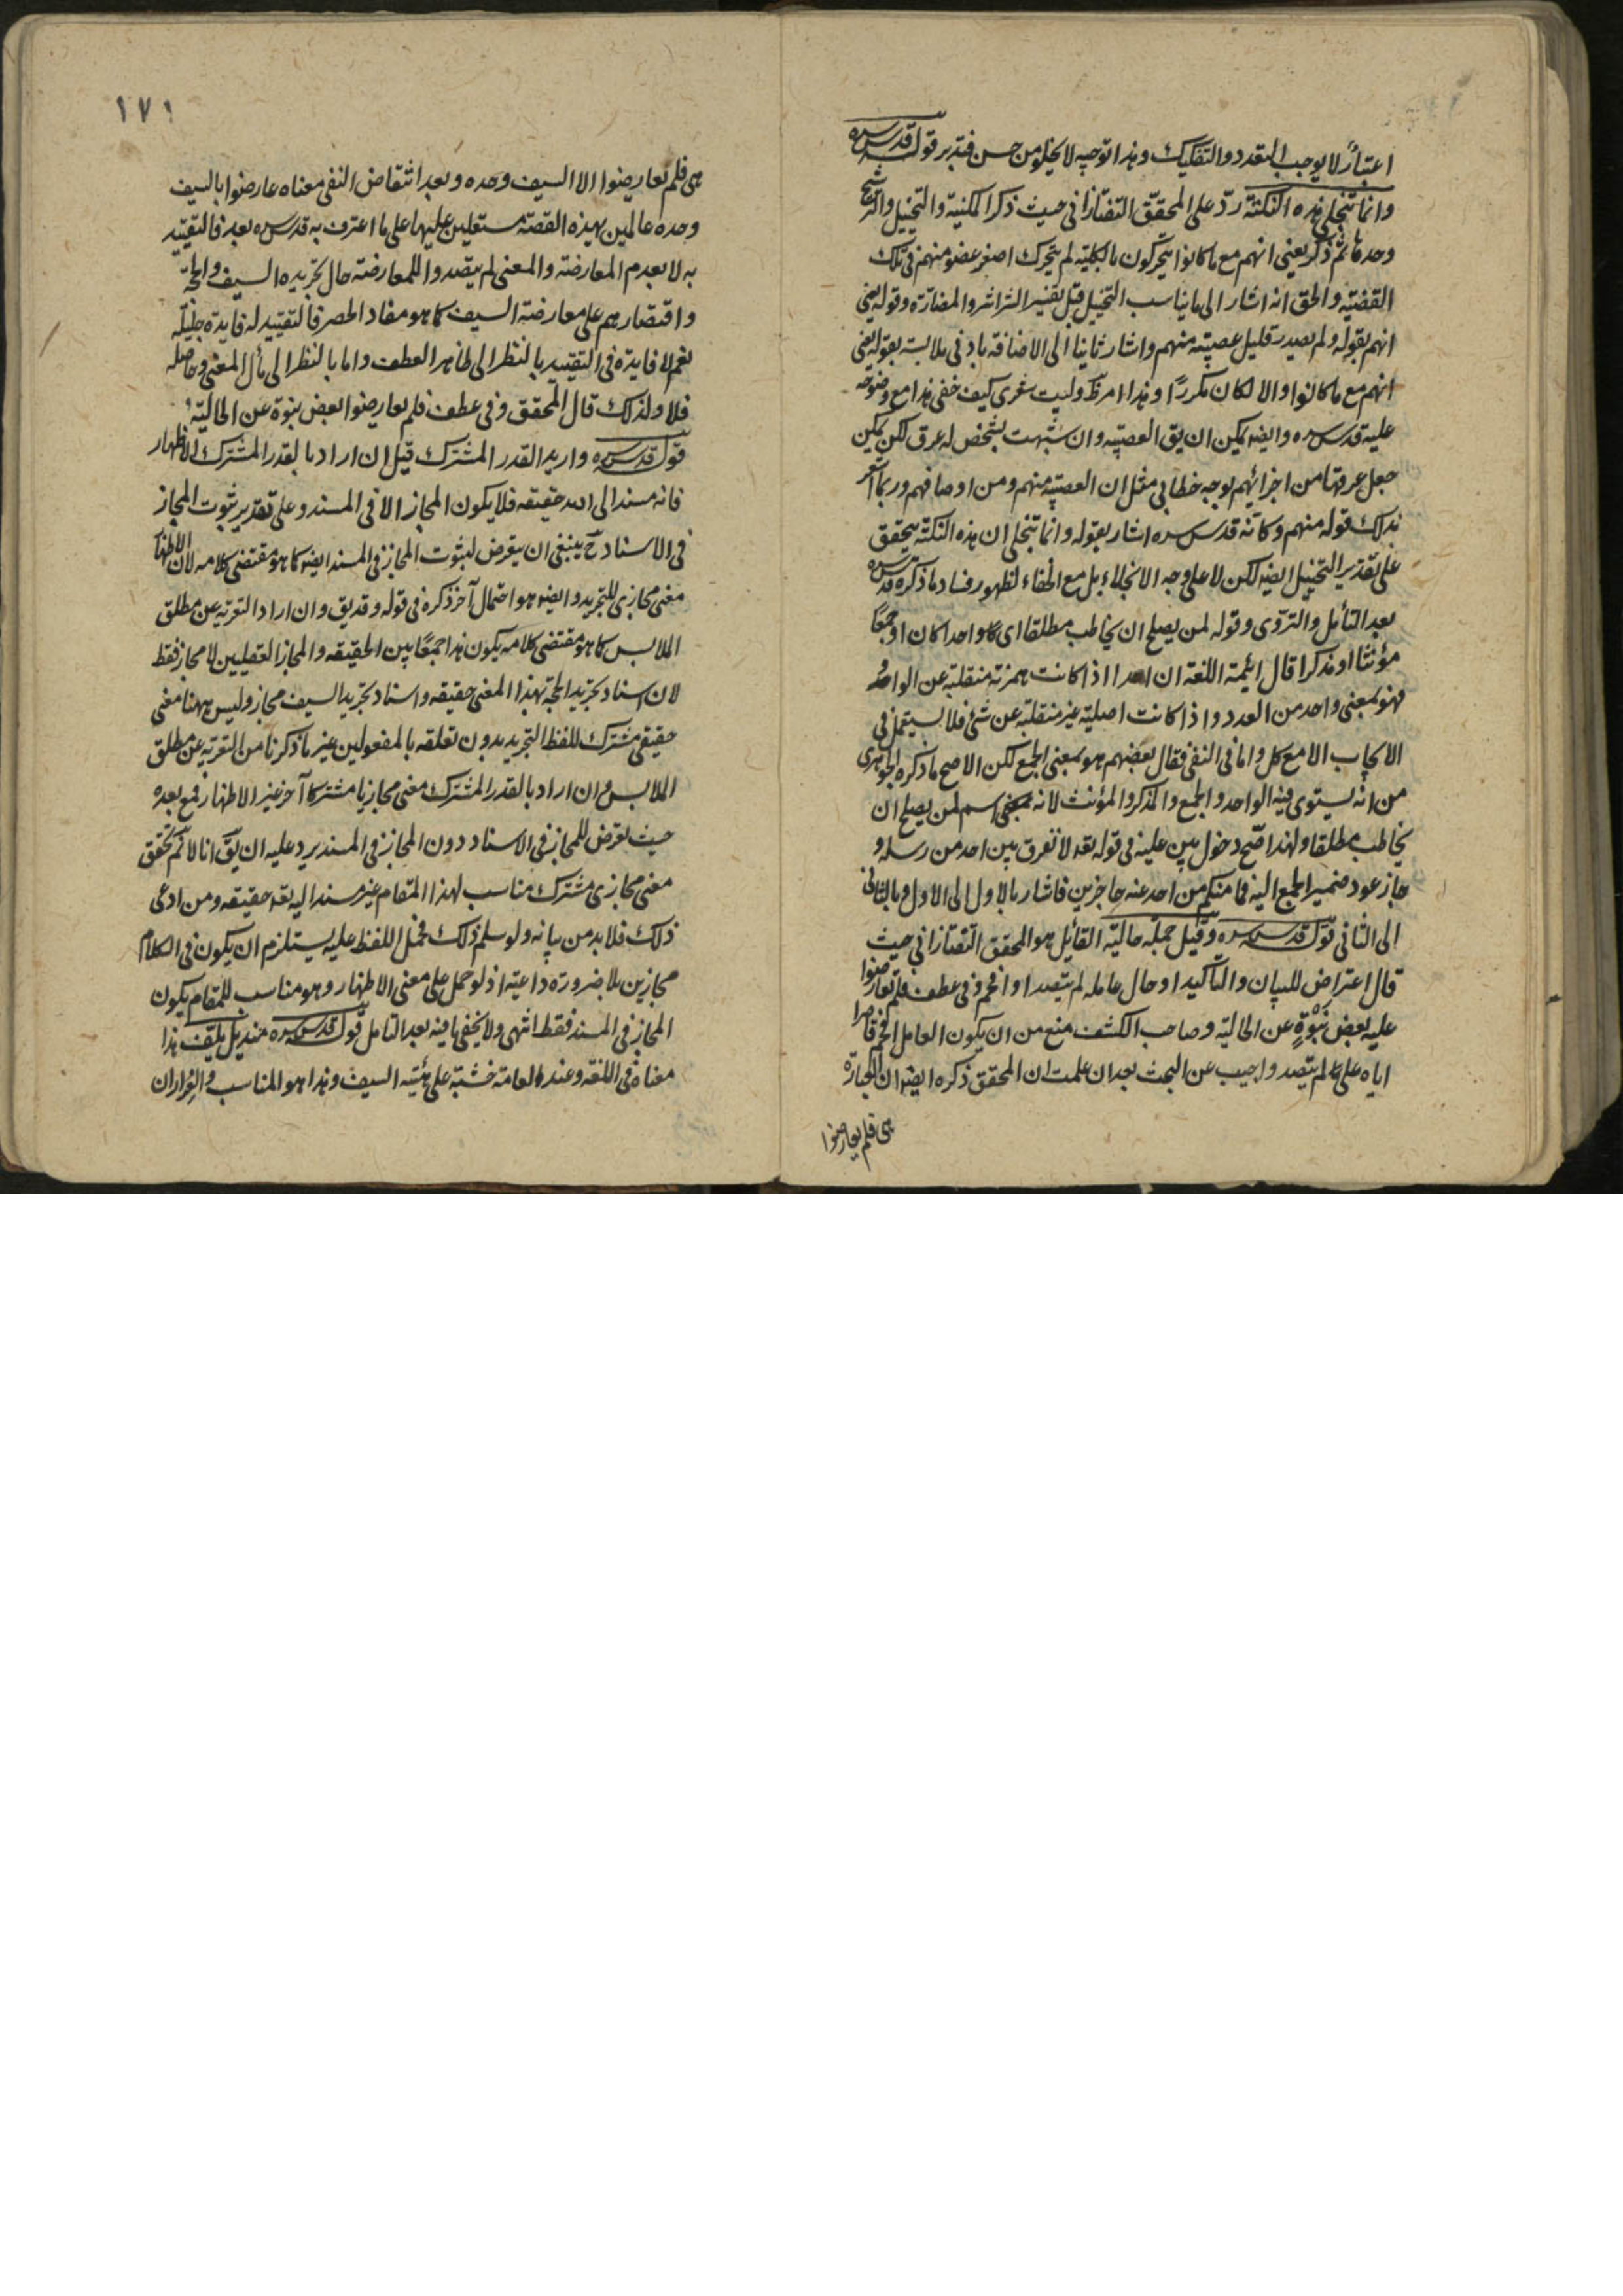 اعتباراً لا يوجب التعدد والتفكيك وهذا توجيه لا يخلو من حسن فتدبر قوله قدس سره
وانما تنجلى هذه النكتة ردّ على المحقق التفتازانى حيث ذكر المكنية والتخييل والترشيح
وحدها ثم ذكر يعنى انهم مع ما كانوا يتحركون بالكلية لم يتحرك اصغر عضو منهم فى تلك
القضيّة والحق انه اشار الى ما يناسب التخييل قبل تفسير الشراشر والمضارّة وقوله يعنى
انهم بقوله ولم يصدر قليل عصبية منهم واشار ثانيا الى الاضافة بادنى ملابسة بقوله يعنى
انهم مع ما كانوا والا لكان مكرراً وهذا امر ظ وليت شعرى كيف خفى هذا مع وضوحه
عليه قدس سره وايضه يمكن ان يق العصبيه وان شبهت بشخص له عرق لكن يمكن
جعل عرقها من اجزائهم بوجه خطابى مثل ان العصبية منهم ومن اوصافهم وربما اشعر
بذلك قوله منهم وكانّه قدس سره اشار بقوله وانما تنجلى ان هذه النكتة يتحقق
على تقدير التخييل ايضه لكن لا على وجه الانجلاء بل مع الخفاء لظهور فساد ما ذكره قدس سره
بعد التأمل والتروّى وقوله لمن يصلح ان يخاطب مطلقا اى واحدا كان او جمعًا
مؤنثا او مذكرا قال ايمة اللغة ان احدا اذا كانت همزته منقلبة عن الواو
فهو بمعنى واحد من العدد واذا كانت اصلية غير منقلبة عن شئ فلا يستعمل فى
الايجاب الا مع كل واما فى النفى فقال بعضهم هو بمعنى الجمع لكن الاصح ما ذكره الجوهرى
من انه يستوى فيه الواحد والجمع والمذكر والمؤنث لانه اسم لمن يصلح ان
يخاطب مطلقا ولهذا صّح دخول بين عليه فى قوله تعه لا نفرق بين احد من رسله و
جاز عود ضمير الجمع اليه فما منكم من احد عنه حاجزين فاشار بالاول الى الاول وبالثانى
الى الثانى قوله قدس سره وقيل جملة حاليّة القائل هو المحقق التفتازانى حيث
قال اعتراض للبيان والتأكيد او حال عامله لم يتصد او افحم وفى عطف فلم يعارضوا
عليه بعض نَبْوَةٍ عن الحاليّة وصاحب الكشف منع من ان يكون العامل افحم قاصرا
اياه على لم يتصد واجيب عن البحث بعد ان علمت ان المحقق ذكره ايضه ان العبارة
هى فلم يعارضوا
١٧١
هى فلم يعارضوا الا السيف وحده وبعد انتقاض النفى معناه عارضوا بالسيف
وحده عالمين بهذه القصة مستعلين عليها على ما اعترف به قدس سره بعد فالتقييد
به لا بعدم المعارضة والمعنى لم يتصدوا للمعارضة حال تجريده السيف والحجّة
واقتصارهم على معارضة السيف كما هو مفاد الحصر فالتقييد له فايدة جليلة
نعم لا فايدة فى التقييد بالنظر الى ظاهر العطف واما بالنظر الى مأل المعنى وحاصله
فلا ولذلك قال المحقق وفى عطف فلم يعارضوا بعض نبوة عن الحاليّة
قوله قدس سره واريد القدر المشترك قيل ان اراد بالقدر المشترك الاظهار
فانه مسند الى الله حقيقه فلا يكون المجاز الا فى المسند وعلى تقدير ثبوت المجاز
فى الاسناد ح ينبغى ان يتعرض لثبوت المجاز فى المسند ايضه كما هو مقتضى كلامه لان الاظهار
معنى مجازى للتجريد وايضه هو احتمال آخر ذكره فى قوله وقد يق وان اراد التعرية عن مطلق
الملابس كما هو مقتضى كلامه يكون هذا جمعًا بين الحقيقه والمجاز العقليين لا مجاز فقط
لان اسناد تجريد الحجة بهذا المعنى حقيقه واسناد تجريد السيف مجاز وليس ههنا معنى
حقيقى مشترك للفظ التجريد بدون تعلقه بالمفعولين غير ما ذكرنا من التعرية عن مطلق
الملابس وان اراد بالقدر المشترك معنى مجازيا مشتركا آخر غير الاظهار فمع بعده
حيث تعرض للمجاز فى الاسناد دون المجاز فى المسند يرد عليه ان يق انا لا نم تحقق
معنى مجازى مشترك مناسب لهذا المقام غير مسند اليه تعه حقيقه ومن ادعى
ذلك فلا بد من بيانه ولو سلم ذلك فحمل اللفظ عليه يستلزم ان يكون فى الكلام
مجازين بلا ضرورة داعية اذ لو حمل على معنى الاظهار وهو مناسب للمقام يكون
المجاز فى المسند فقط انتهى ولا يخفى ما فيه بعد التامل قوله قدس سره منديل يلف هذا
معناه فى اللغة وعند العامة خشبة على هيئة السيف وهذا هو المناسب